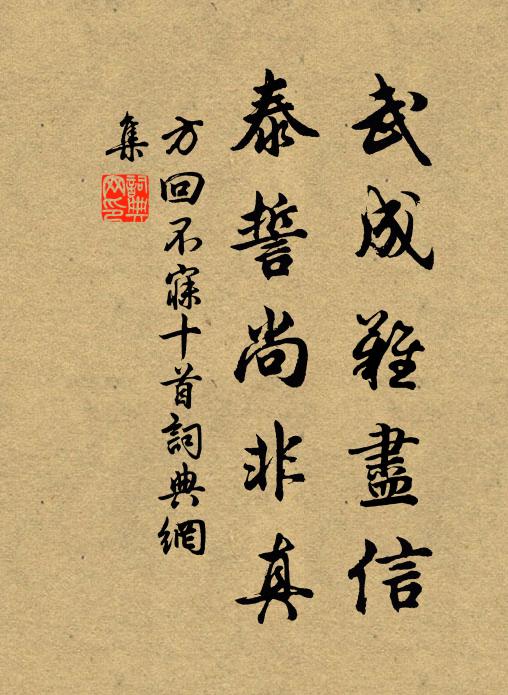 武成難盡信
泰誓尚非真
方回不寐十首詞典網
集
詞典網印